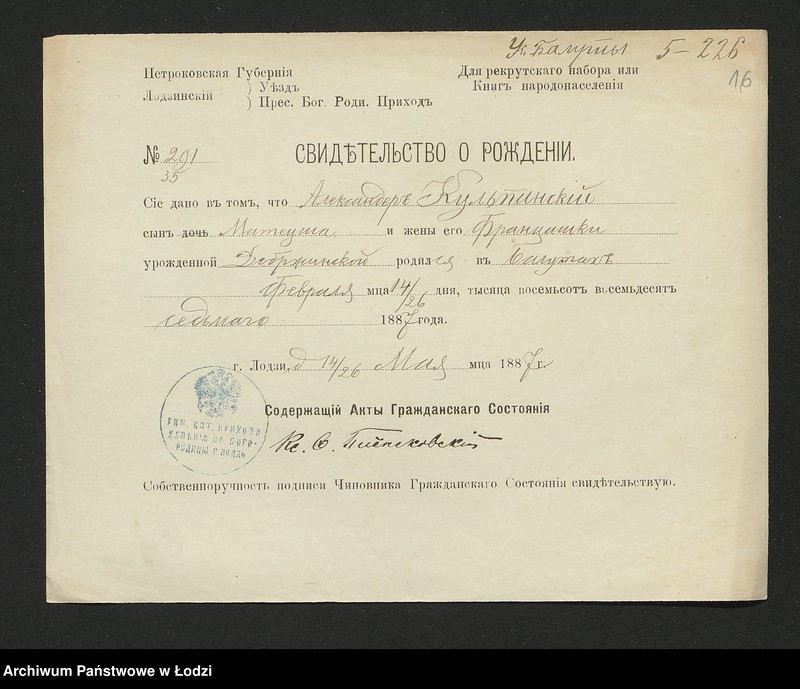 Ук. Балуты 5-226
16
Петроковская Губернія
Лодзинскій ) Уѣздъ
) Прес. Бог. Роди. Приходъ
Для рекрутскаго набора или
Книгъ народонаселенія
№ 291
35
СВИДѢТЕЛЬСТВО О РОЖДЕНІИ.
Сіе дано въ томъ, что Александеръ Кульпинскій
сынъ дочь Матеуша и жены его Францишки
урожденной Добржинской родился въ Балутахъ
Февраля мца 14/26 дня, тысяца восемьсот восемьдесят
седьмаго 1887 года.
г. Лодзи, д 14/26 Мая мца 1887 г.
Содержащій Акты Гражданскаго Состоянія
Кс. О.
РИМ. КАТ. ПРИХОДА
ГОРОДИЦЫ Г. ЛОДЗЬ
Собственноручность подписи Чиновника Гражданскаго Состоянія свидѣтельствую.
Archiwum Państwowe w Łodzi